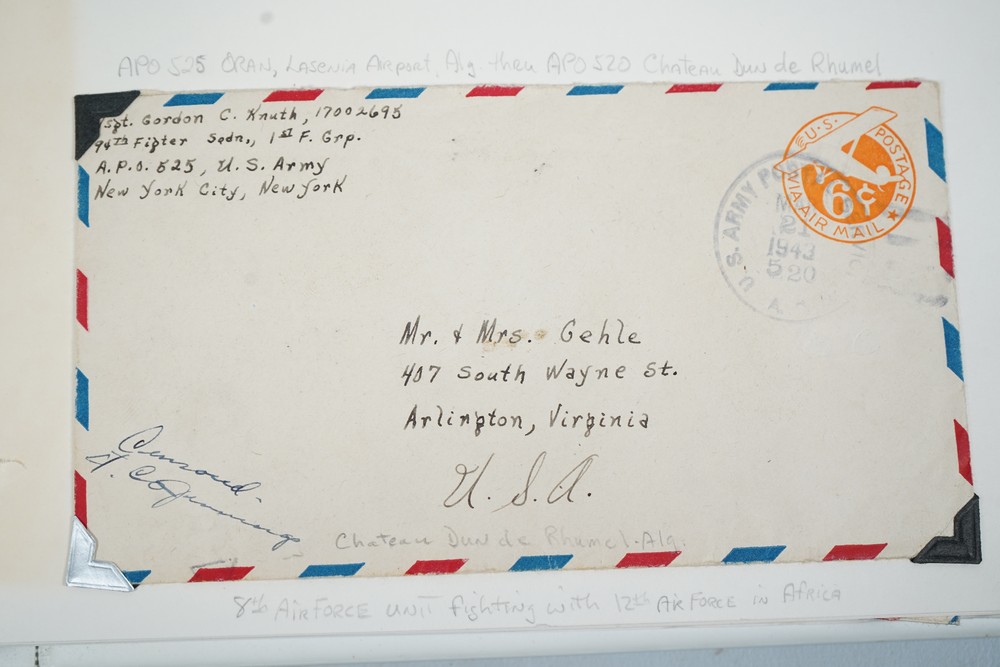 APO 525 ORAN, Lasenia Airport, Alg thru APO 520 Chateau Dun de Rhumel
sgt. Gordon C. Knuth, 17002695
94th Figter Sqdn., 1st F. Grp.
A.P.O. 525, U.S. Army
New York City, New York
U.S. POSTAGE
6¢
VIA AIR MAIL
U.S. ARMY
21
1943
520
Mr. & Mrs. Gehle
407 South Wayne St.
Arlington, Virginia
U. S. A.
Censored-
Jennings
Chateau Dun de Rhumel-Alg.
8th AIR FORCE UNIT fighting with 12th AIR FORCE in AFRICA